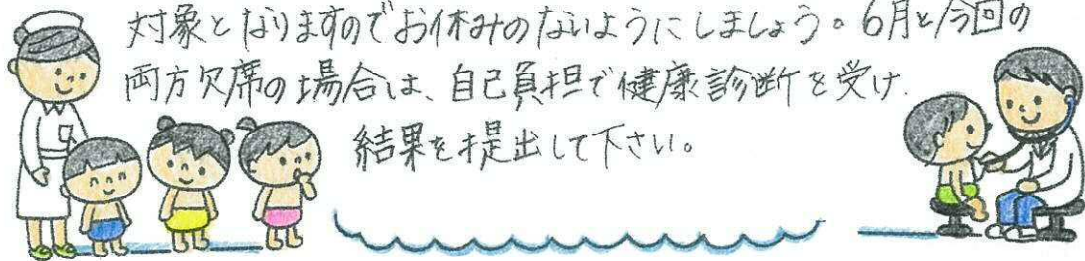 対象となりますのでお休みのないようにしましょう。6月と今回の
両方欠席の場合は、自己負担で健康診断を受け、
結果を提出して下さい。